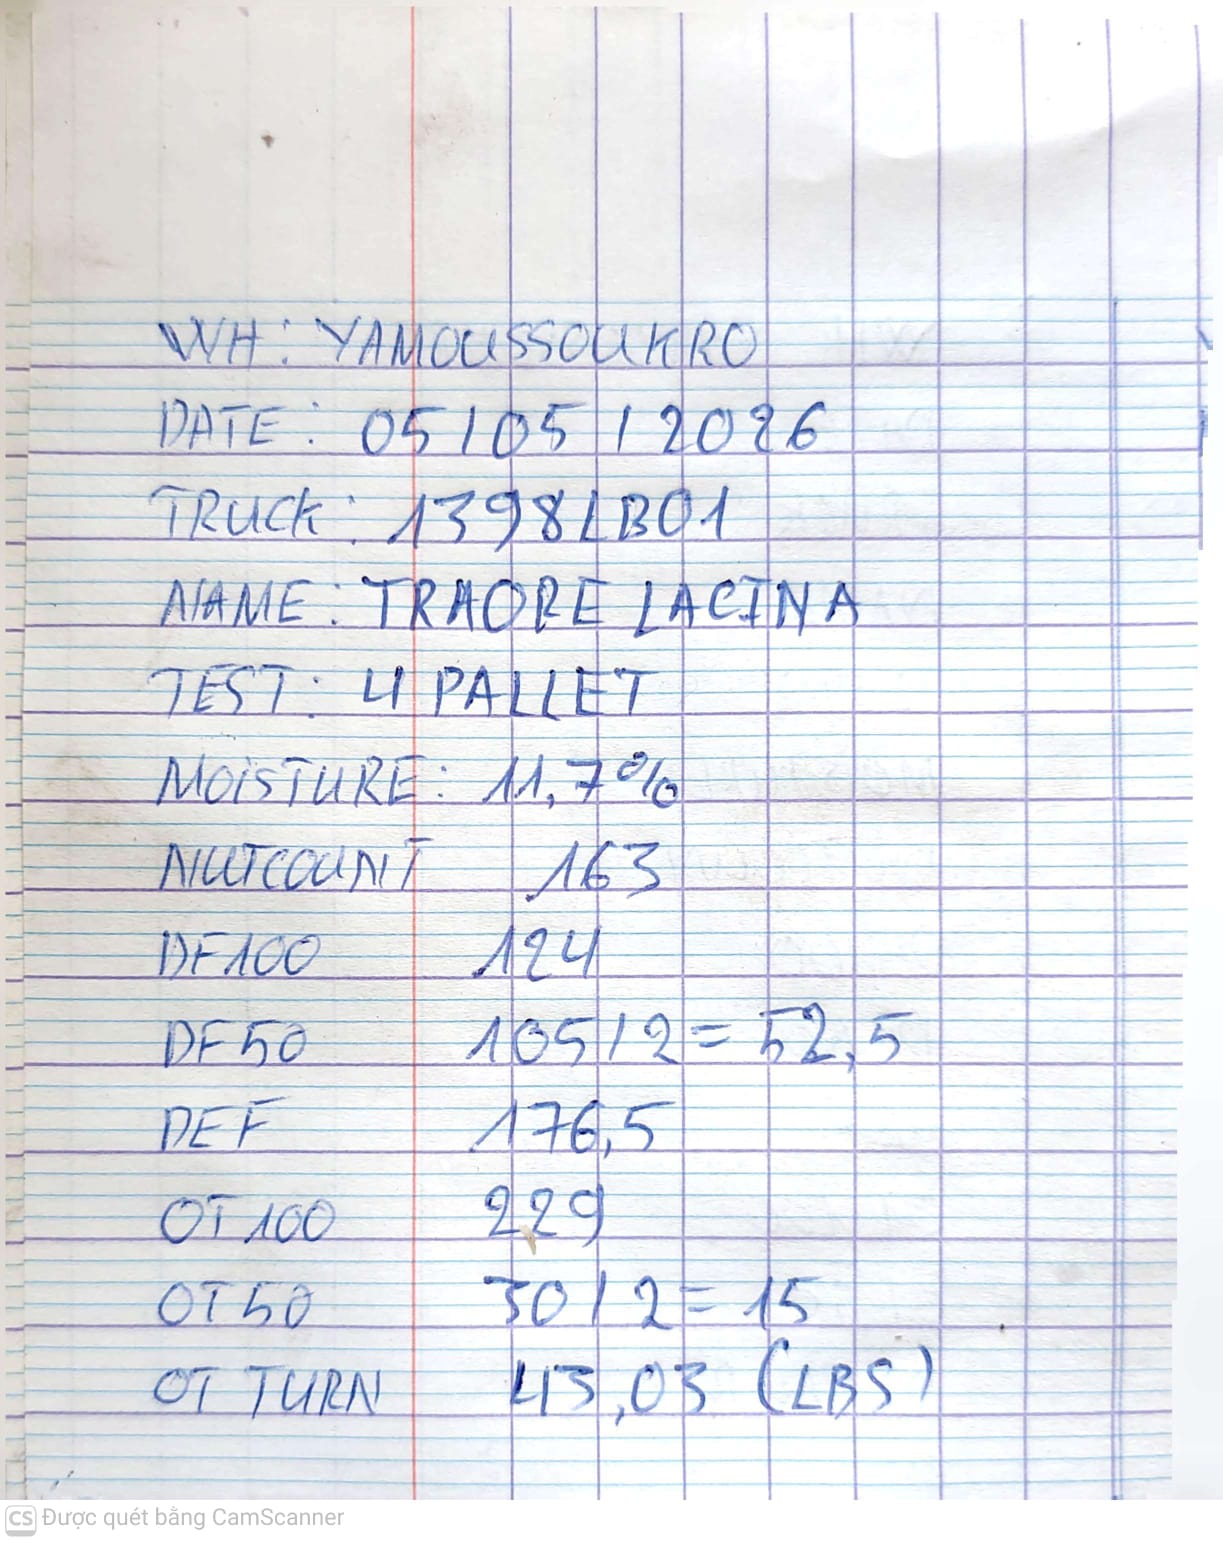 WH: YAMOUSSOUKRO
DATE: 05/05/2026
TRUCK: 1398LB01
NAME: TRAORE LACINA
TEST: 4 PALLET
MOISTURE: 11,7%
NUTCOUNT 163
DF100 124
DF50 105/2=52,5
DEF 176,5
OT100 229
OT50 30/2=15
OT TURN 43,03 (LBS)
CS Được quét bằng CamScanner